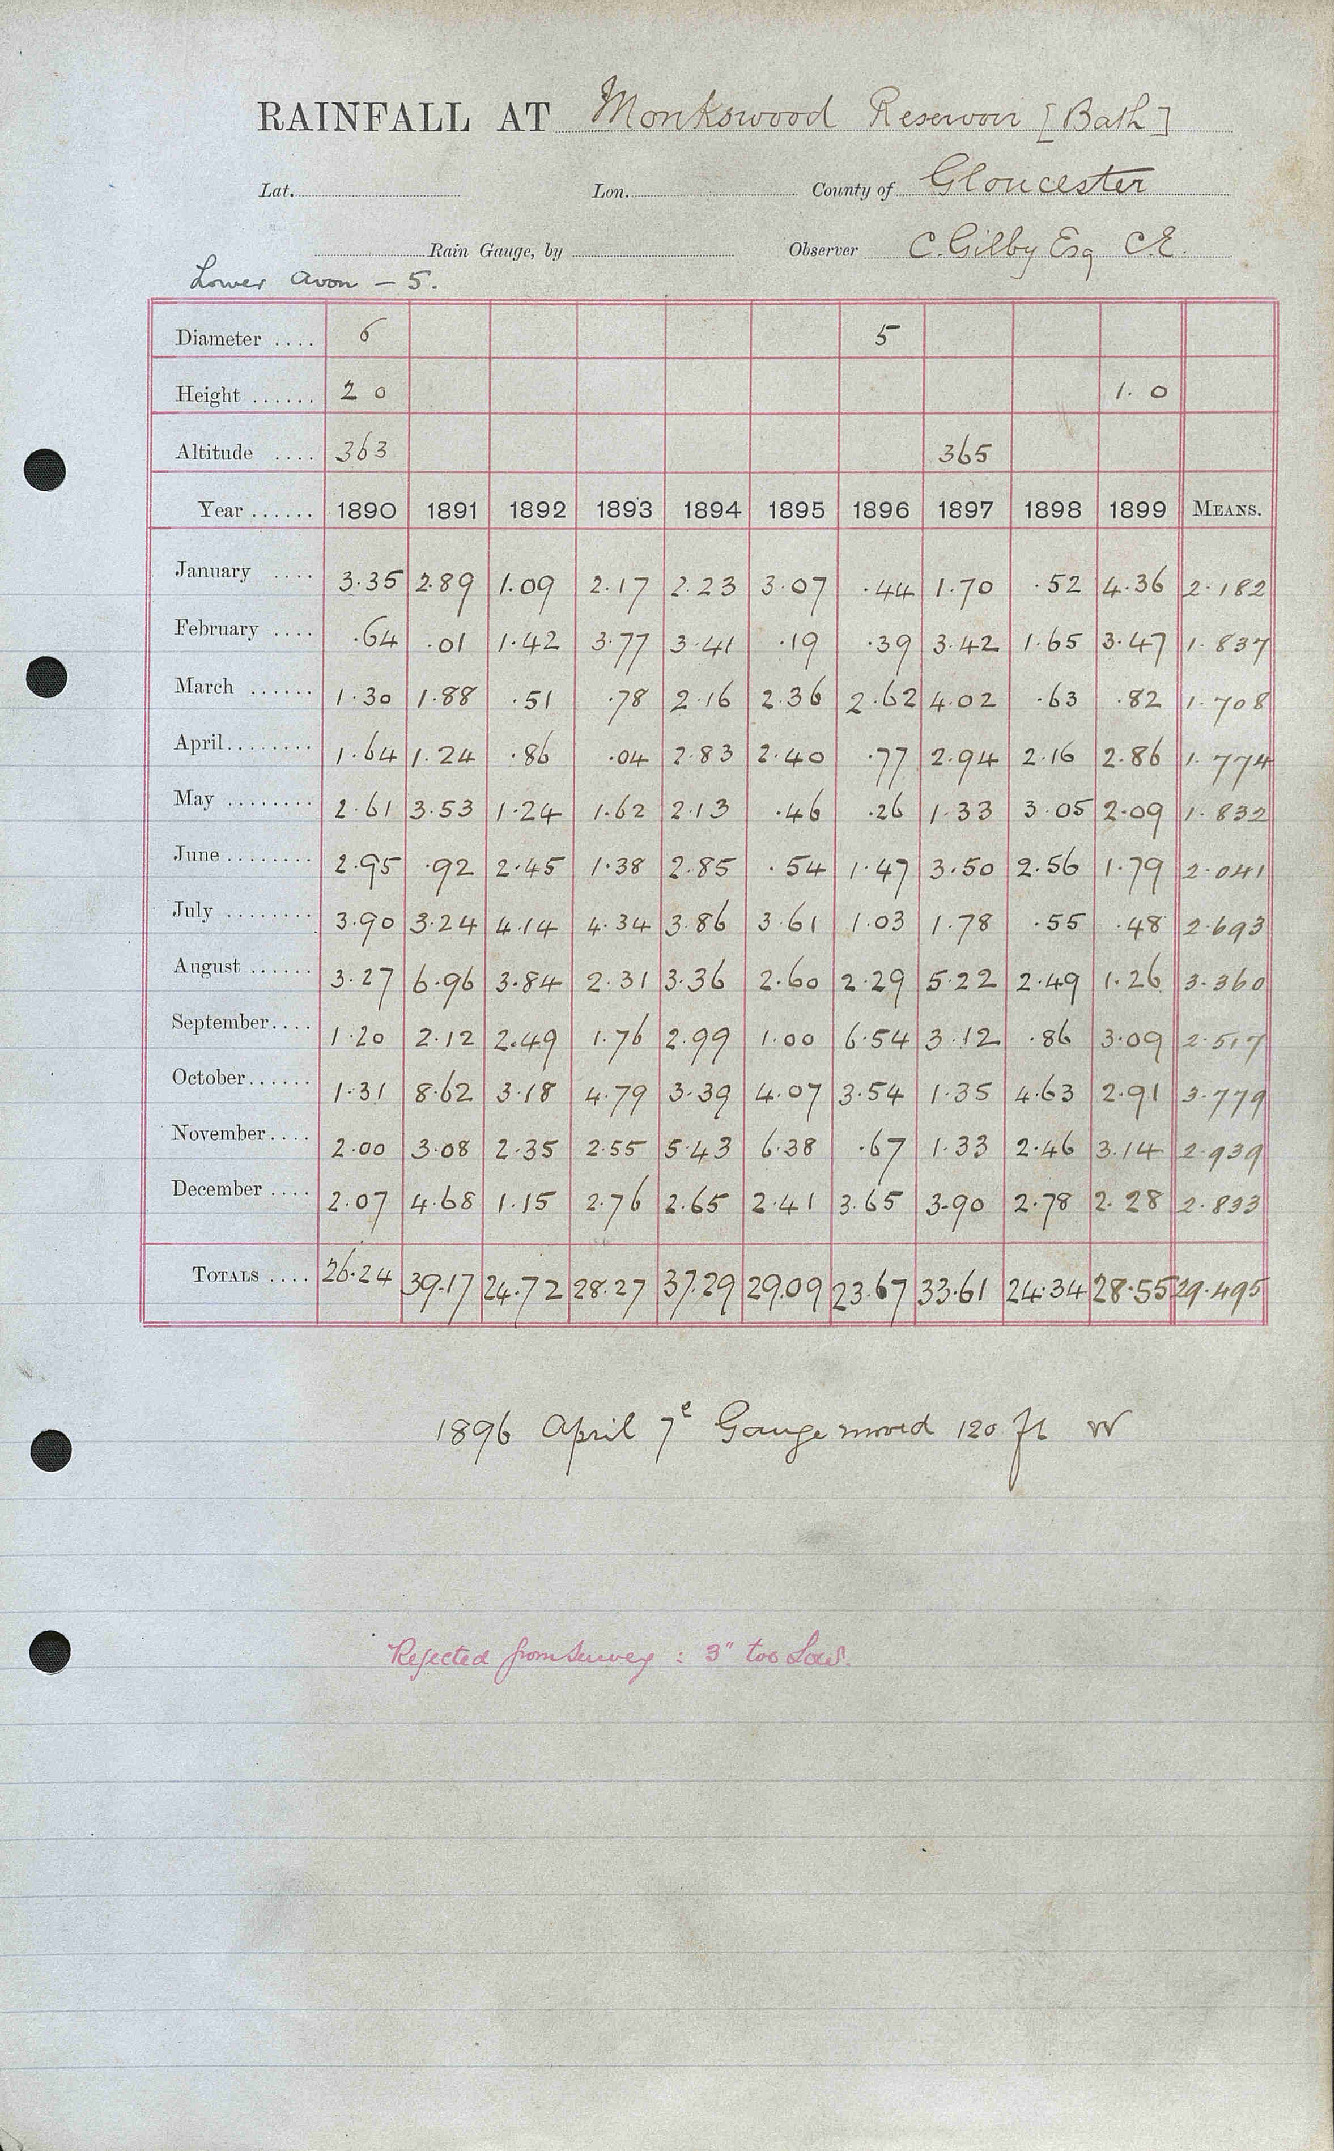 RAINFALL AT Monkswood Reservoir [Bath]
Lat. Lon. County of Gloucester
Rain Gauge, by Observer C. Gilby Esq C.E.
Lower Avon - 5.
Diameter .... 6 5
Height ...... 2 0 1. 0
Altitude .... 363 365
Year ...... 1890 1891 1892 1893 1894 1895 1896 1897 1898 1899 MEANS.
January .... 3.35 2.89 1.09 2.17 2.23 3.07 .44 1.70 .52 4.36 2.182
February .... .64 .01 1.42 3.77 3.41 .19 .39 3.42 1.65 3.47 1.837
March ...... 1.30 1.88 .51 .78 2.16 2.36 2.62 4.02 .63 .82 1.708
April ........ 1.64 1.24 .86 .04 2.83 2.40 .77 2.94 2.16 2.86 1.774
May ........ 2.61 3.53 1.24 1.62 2.13 .46 .26 1.33 3.05 2.09 1.832
June ........ 2.95 .92 2.45 1.38 2.85 .54 1.47 3.50 2.56 1.79 2.041
July ........ 3.90 3.24 4.14 4.34 3.86 3.61 1.03 1.78 .55 .48 2.693
August ...... 3.27 6.96 3.84 2.31 3.36 2.60 2.29 5.22 2.49 1.26 3.360
September .... 1.20 2.12 2.49 1.76 2.99 1.00 6.54 3.12 .86 3.09 2.517
October ...... 1.31 8.62 3.18 4.79 3.39 4.07 3.54 1.35 4.63 2.91 3.779
November .... 2.00 3.08 2.35 2.55 5.43 6.38 .67 1.33 2.46 3.14 2.939
December .... 2.07 4.68 1.15 2.76 2.65 2.41 3.65 3.90 2.78 2.28 2.833
TOTALS .... 26.24 39.17 24.72 28.27 37.29 29.09 23.67 33.61 24.34 28.55 29.495
1896 April 7 Gauge moved 120 ft W
Rejected from Survey : 3" too Low.